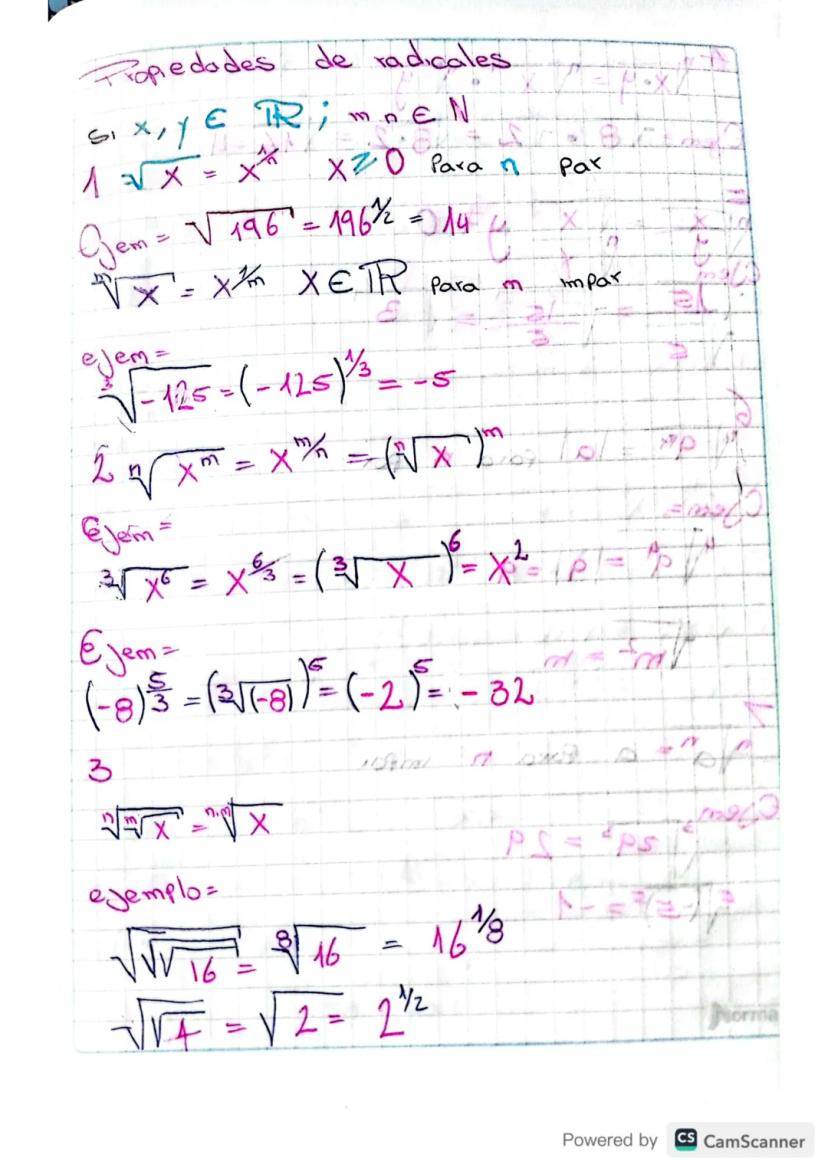 Propiedades de radicales
Si x, y ∈ ℝ; m n ∈ N
1 √x = x^1/n x ≥ 0 Para n par
Ejem = √196 = 196^1/2 = 14
ᵐ√x = x^1/m X ∈ ℝ para m impar
ejem =
³√-125 = (-125)^1/3 = -5
2 ⁿ√x^m = x^m/n = (ⁿ√x)^m
Ejem =
³√x^6 = x^6/3 = (³√x)^6 = x^2
Ejem =
(-8)^5/3 = (³√(-8))^5 = (-2)^5 = - 32
3
ⁿ√ᵐ√x = ⁿ·ᵐ√x
ejemplo =
√√√16 = ⁸√16 = 16^1/8
√√4 = √2 = 2^1/2
Norma
Powered by CS CamScanner